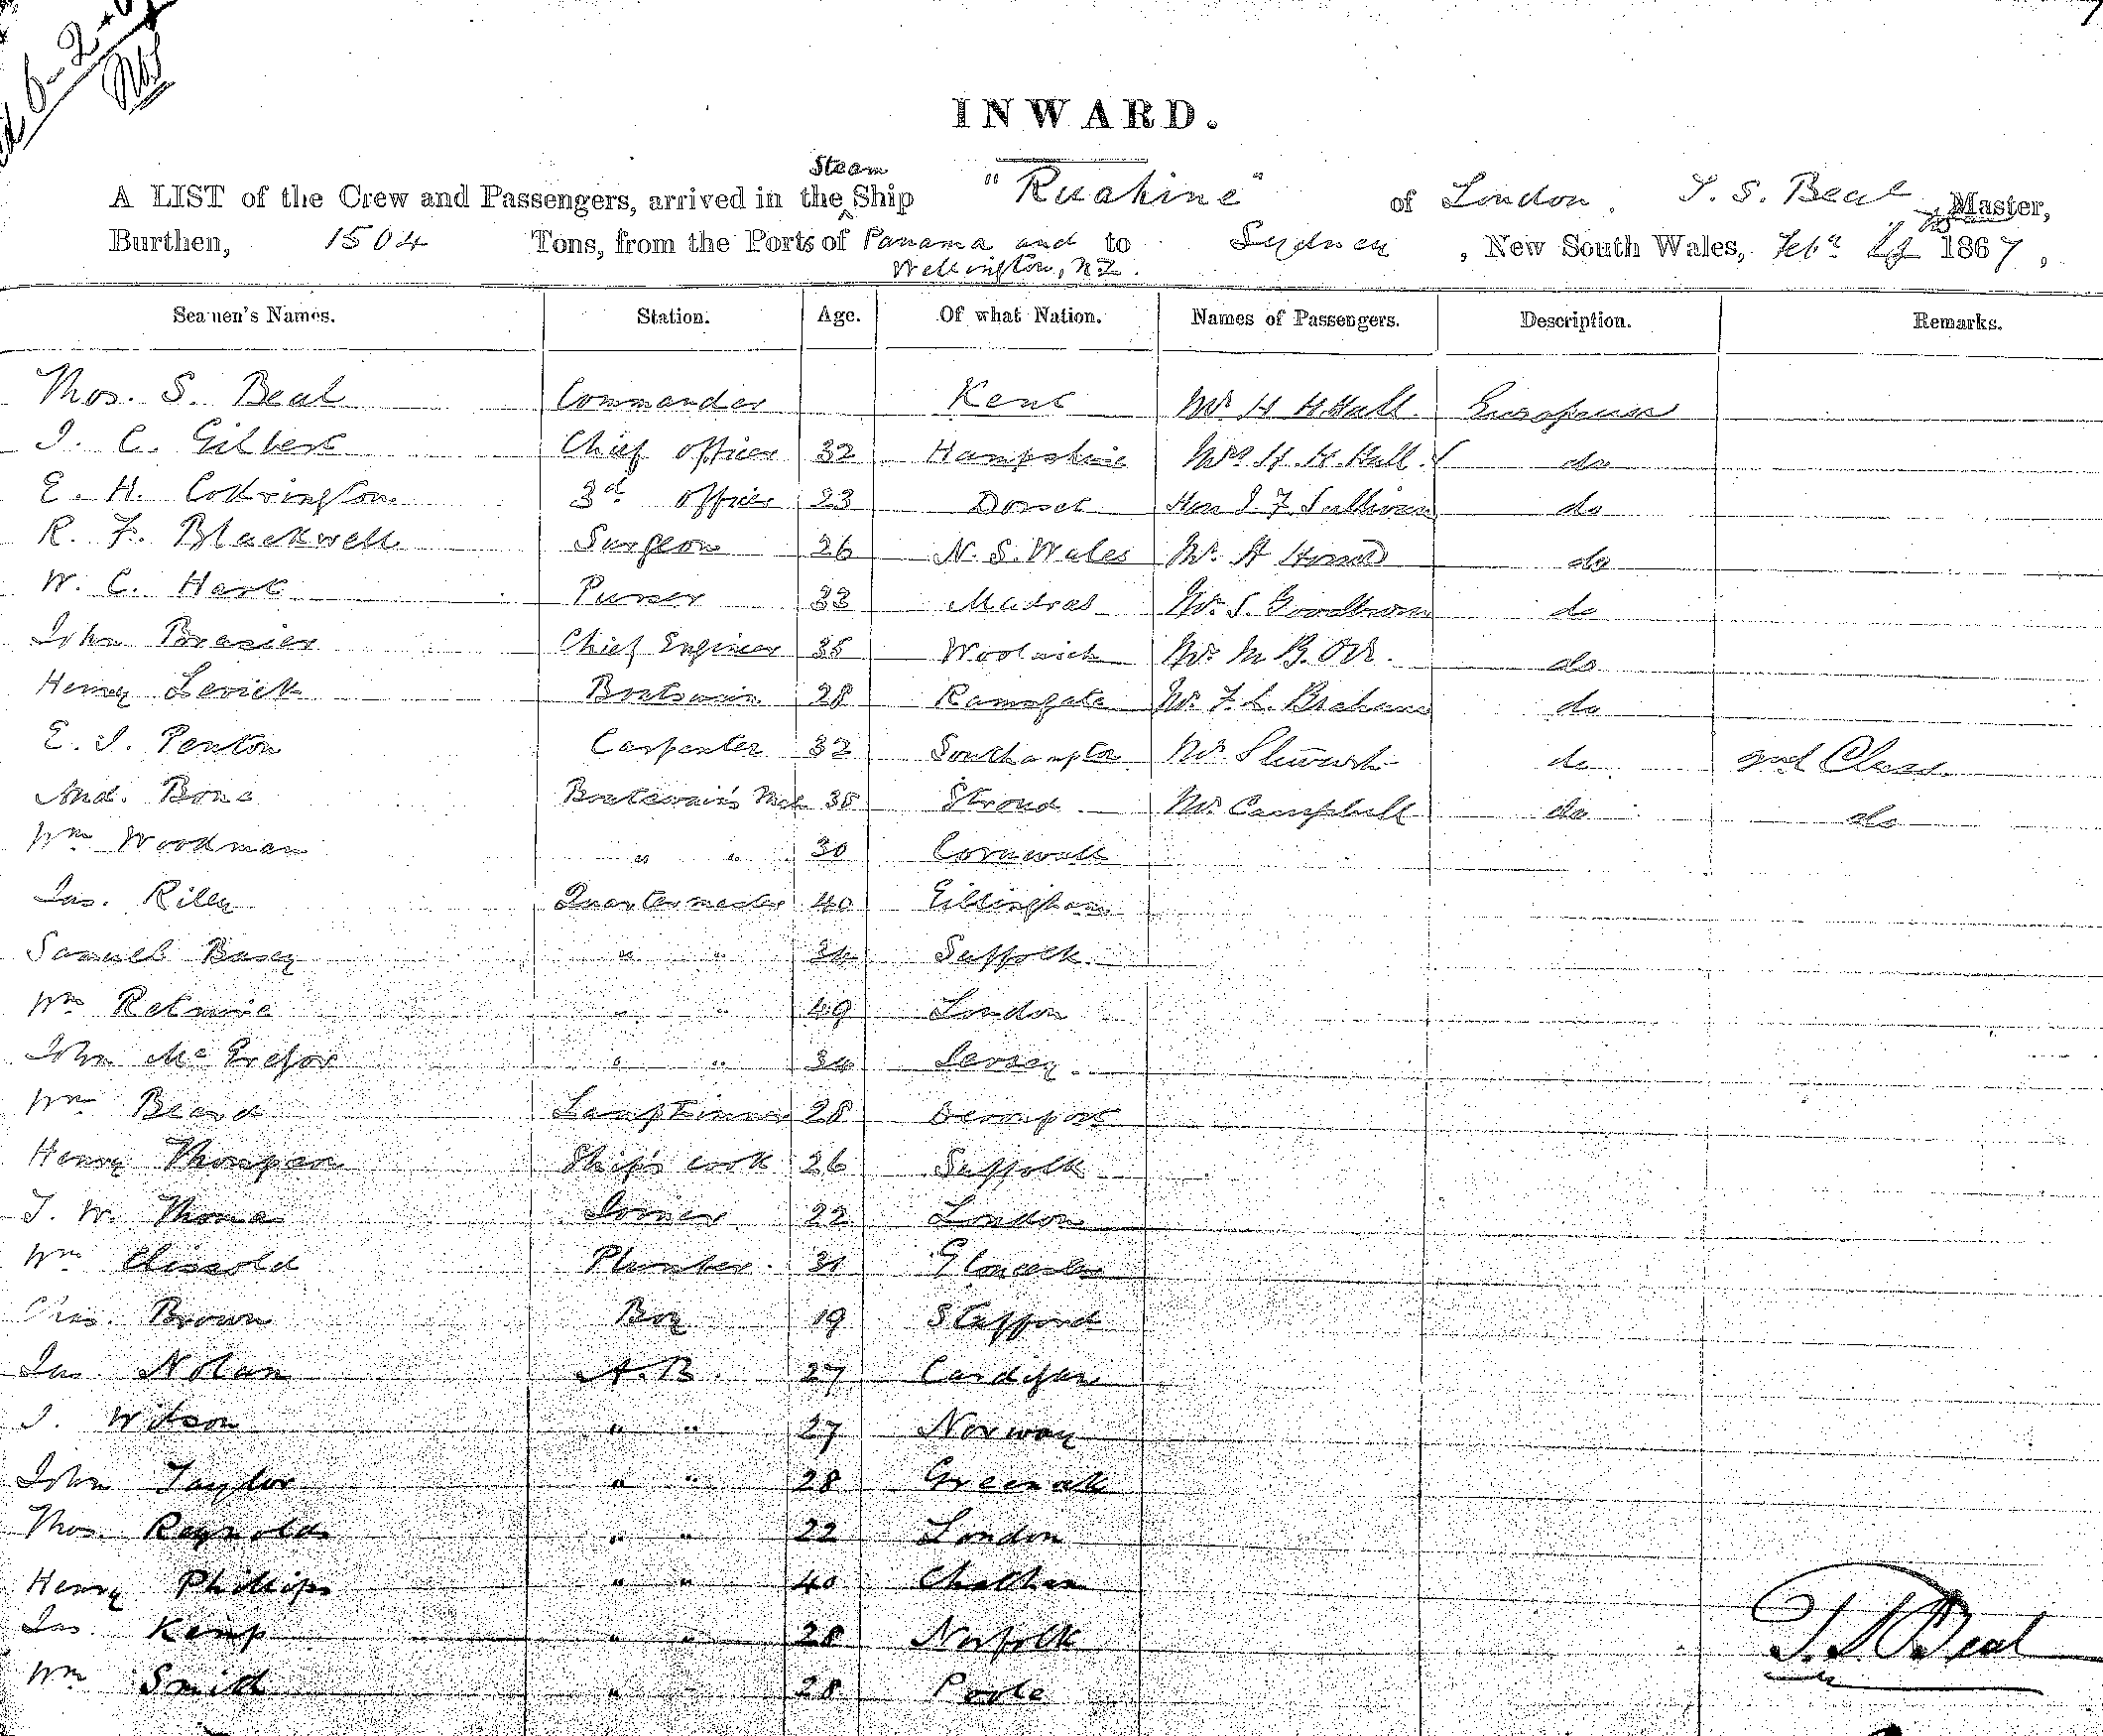 6-2-
INWARD.
A LIST of the Crew and Passengers, arrived in the Steam Ship "Ruahine" of London. T. S. Beal Master,
Burthen, 1504 Tons, from the Ports of Panama and Wellington, NZ. to Sydney, New South Wales, Feby 1867,
Seamen's Names. Station. Age. Of what Nation. Names of Passengers. Description. Remarks.
Thos. S. Beal Commander Kent Mr H H Hall. European
J. C. Gilbert Chief Officer 32 Hampshire Mrs H. H. Hall. do
E. H. Codrington 3d Officer 23 Dorset Hon J. F. Sullivan do
R. F. Blackwell Surgeon 26 N. S. Wales Mr. H do
W. C. Hart Purser 33 Madras Mr. S. do
John Brasier Chief Engineer 35 Woolwich Mr. M B. Orr. do
Henry Levick Boatswain 28 Ramsgate Mr. F. L. do
E. J. Penton Carpenter 32 Southampton Mr Stewart do 2nd Class
And. Bone Boatswain's Mate 38 Stroud Mr Campbell do do
Wm Woodman " " 30 Cornwall
Jas. Riley Quartermaster 40 Gillingham
Samuel Basey " " 34 Suffolk
Wm Retmire " " 49 London
John McGregor " " 34 Jersey.
Wm Beard Lamptrimmer 28 Devonport
Henry Thompson Ship's cook 26 Suffolk
T. W. Thomas Joiner 22 London
Wm Clissold Plumber 31 Gloucester
Chas. Brown Boy 19 Stafford
Jas Nolan A.B. 27 Cardigan
J. Wilson " " 27 Norway
John Taylor " " 28 Greenock
Thos. Reynolds " " 22 London
Henry Phillips " " 40 Chatham
Jas. Kemp " " 28 Norfolk
T. S. Beal
Wm Smith " " 28 Poole